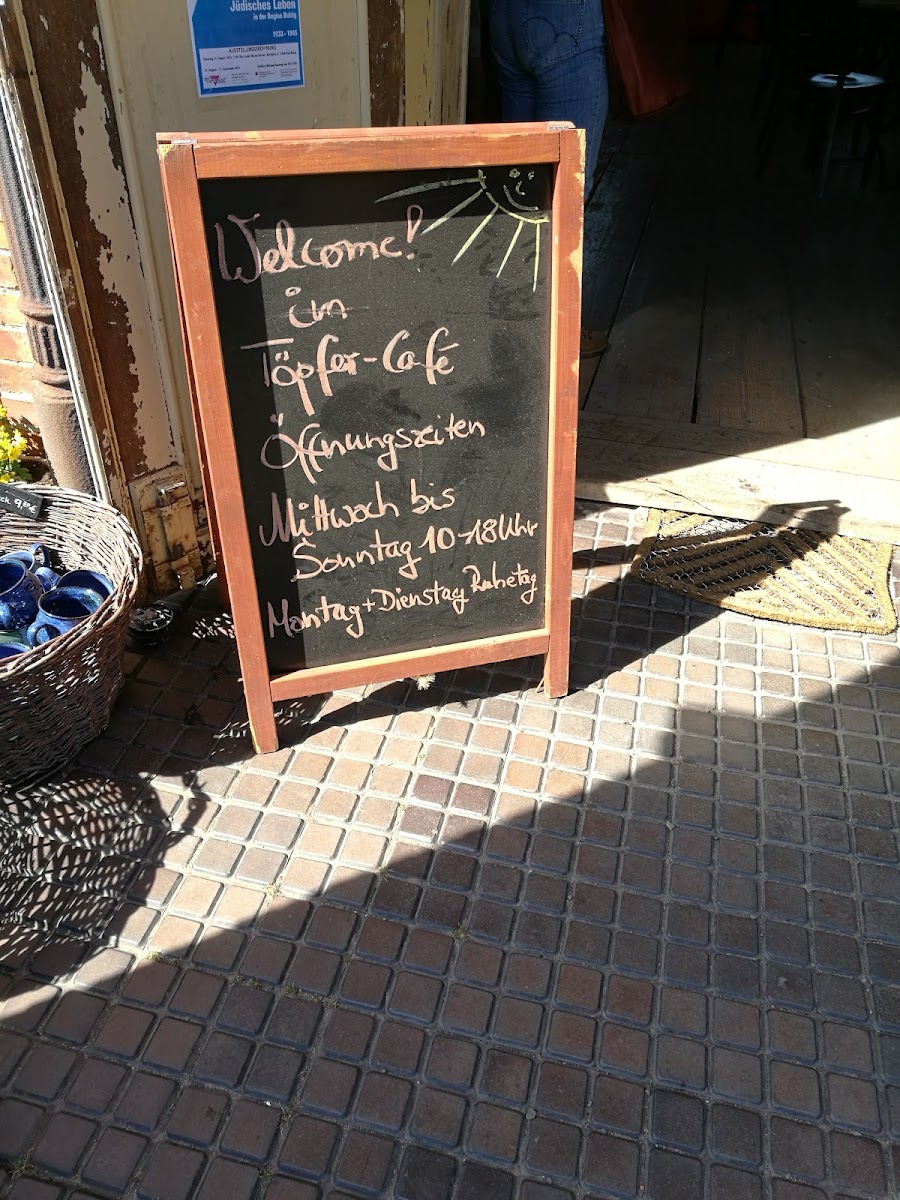 Jüdisches Leben
in der Region Belzig
1933 - 1945
AUSSTELLUNGSERÖFFNUNG
Welcome!
im
Töpfer-Café
Öffnungszeiten
Mittwoch bis
Sonntag 10-18Uhr
Montag+Dienstag Ruhetag